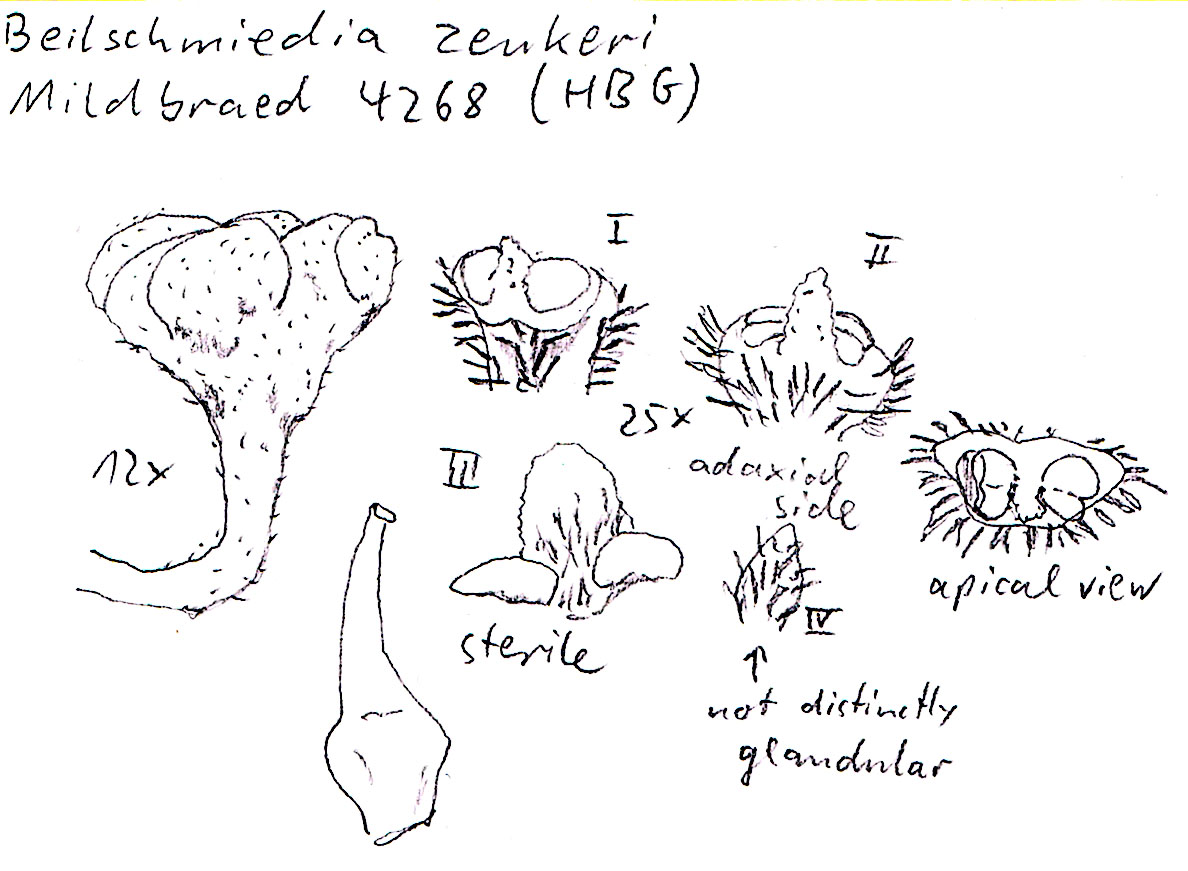 Beilschmiedia zenkeri
Mildbraed 4268 (HBG)
I
II
12x
25x
III
adaxial
side
sterile
IV
apical view
↑
not distinctly
glandular